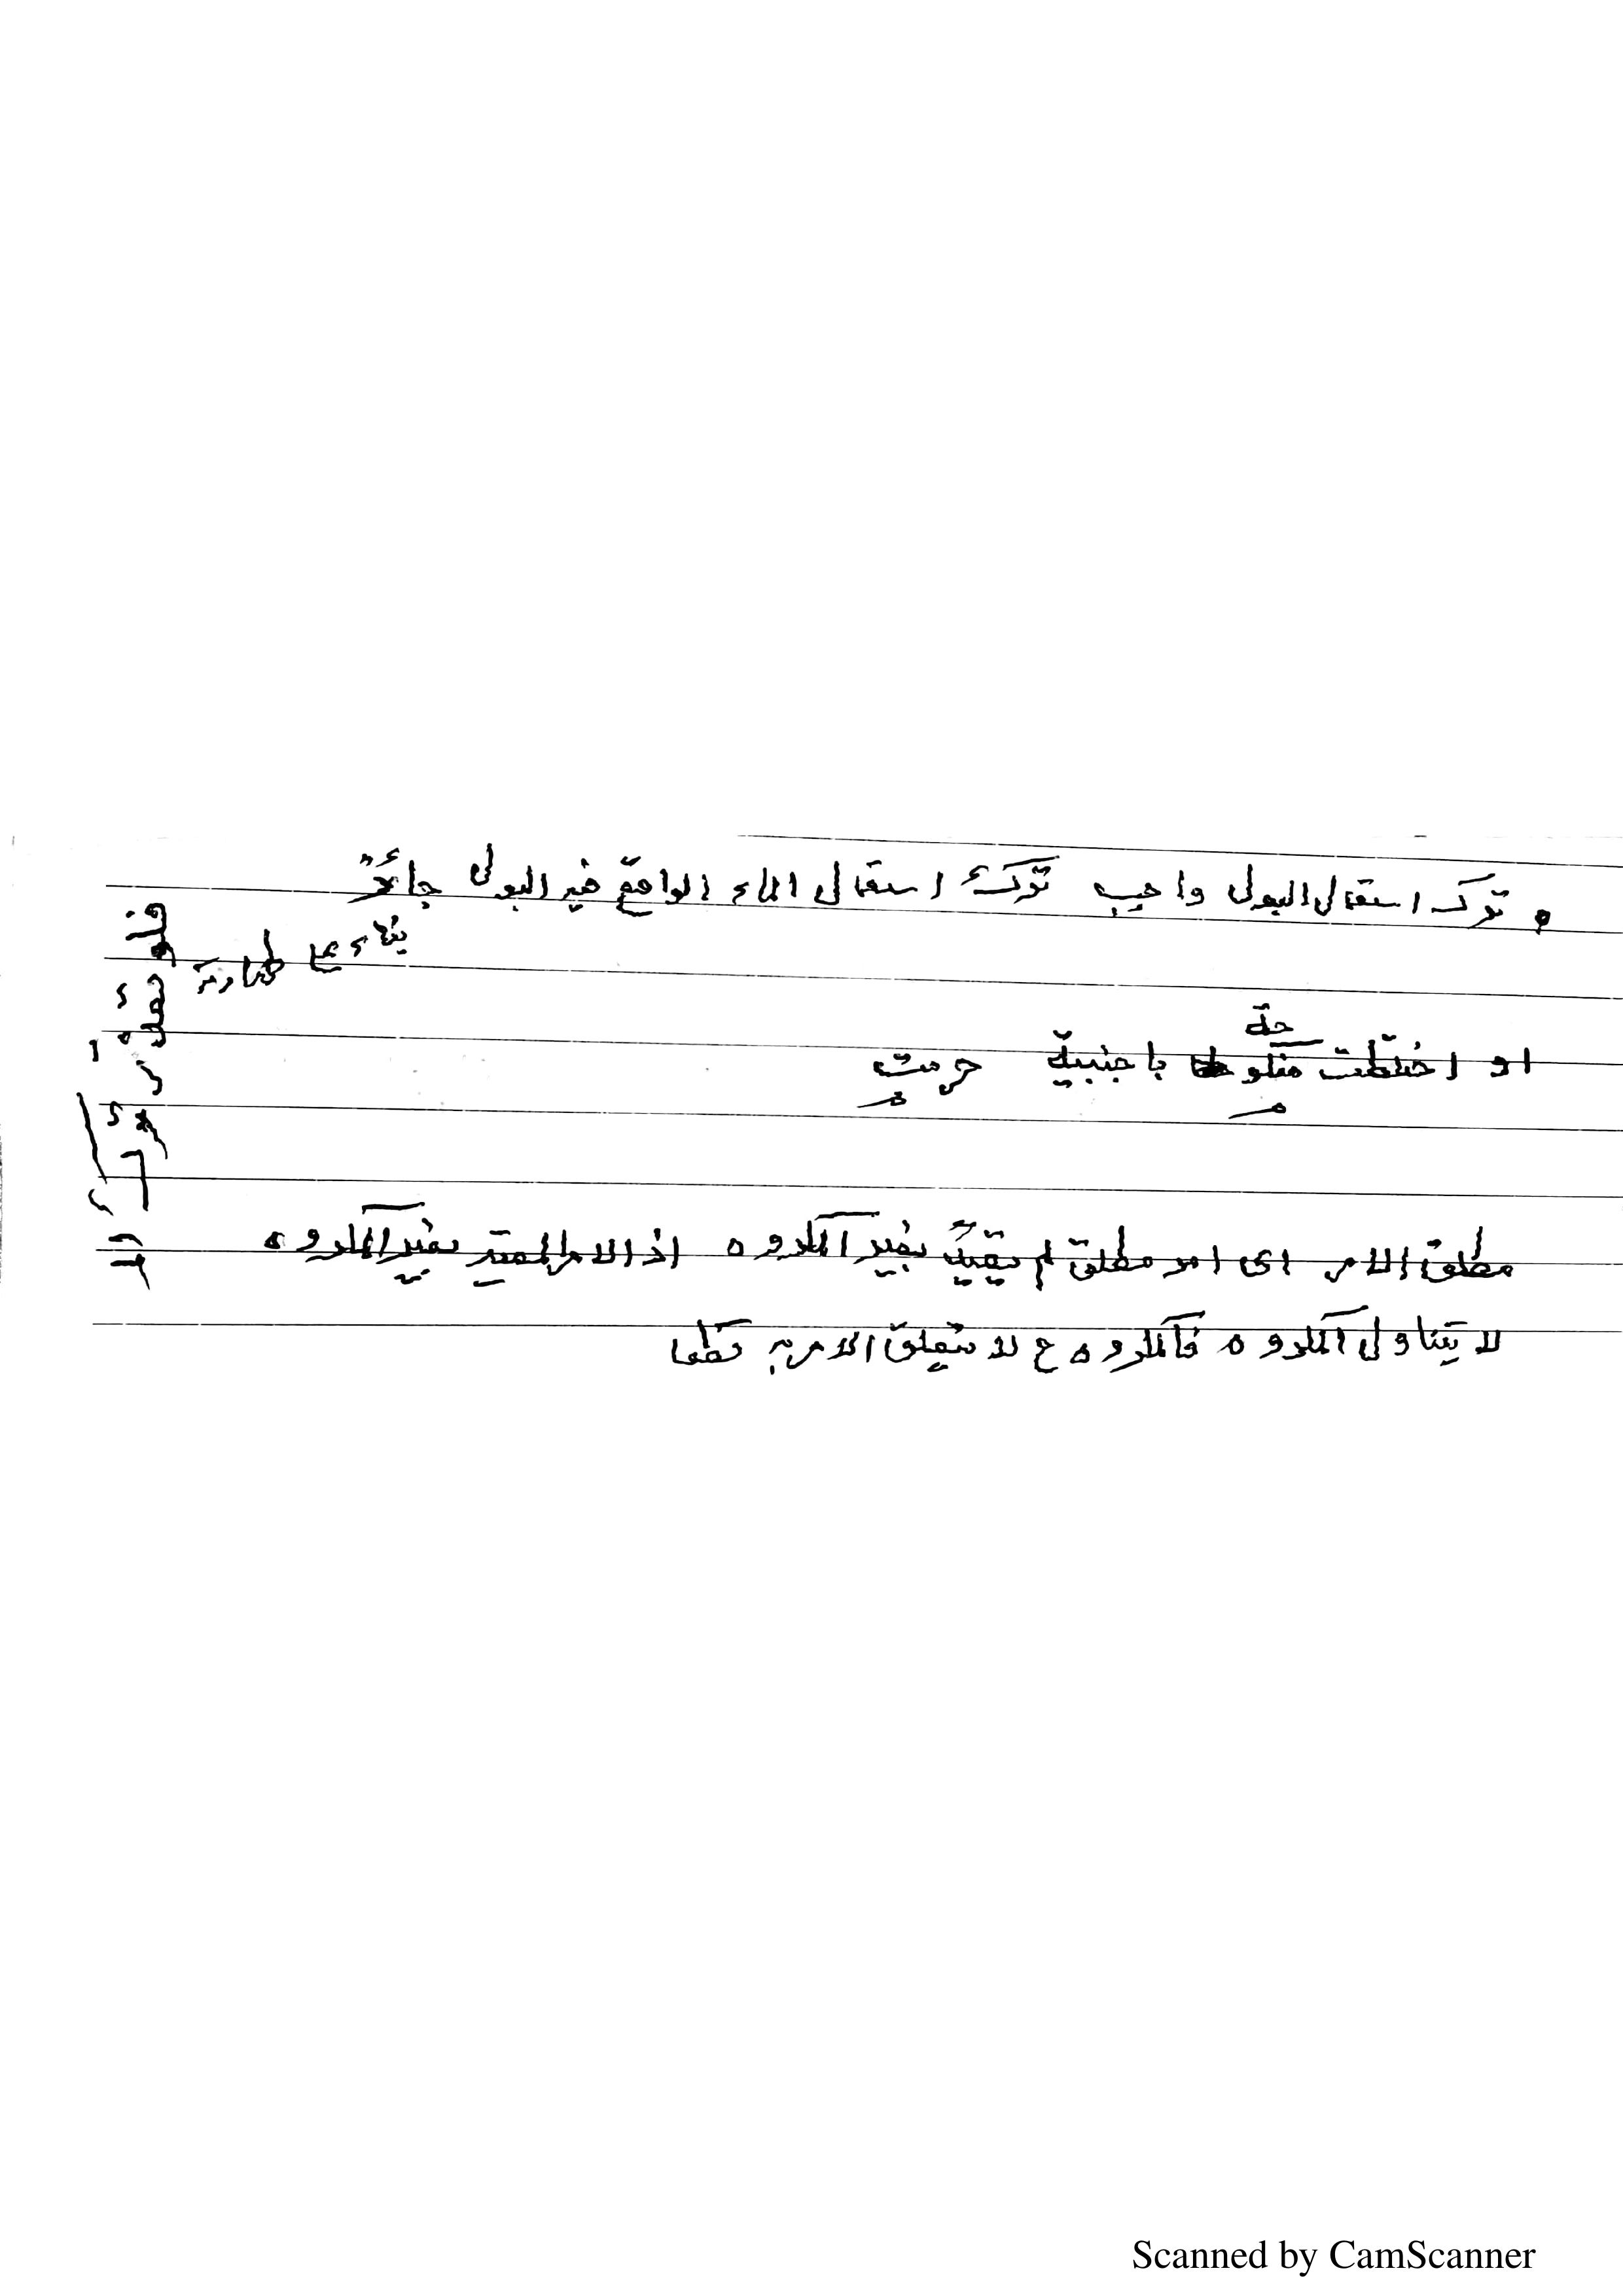 ترك استعمال البول واجب ترك استعمال الماء الواقع فيه البول جائز
بناء ع طهارته
او اختلطت منكوحة باجنبية حرمت
مطلق الامر اى امر مطلق لم يقيد بغير المكروه اذ الامر المقيد بغير المكروه
لا يتناول المكروه فالمكروه ح لا يتعلق الامر به قطعا
Scanned by CamScanner